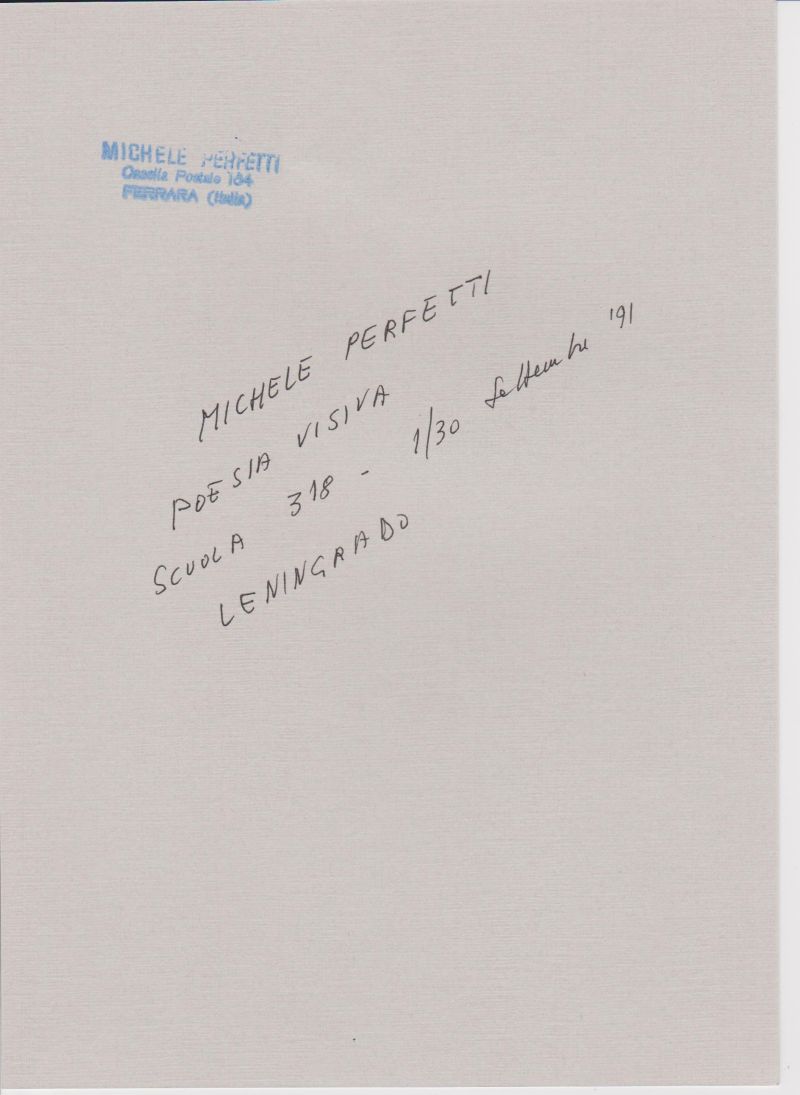 MICHELE PERFETTI
Casella Postale 184
FERRARA (Italia)
MICHELE PERFETTI
POESIA VISIVA
SCUOLA 318 - 1/30 Settembre '91
LENINGRADO